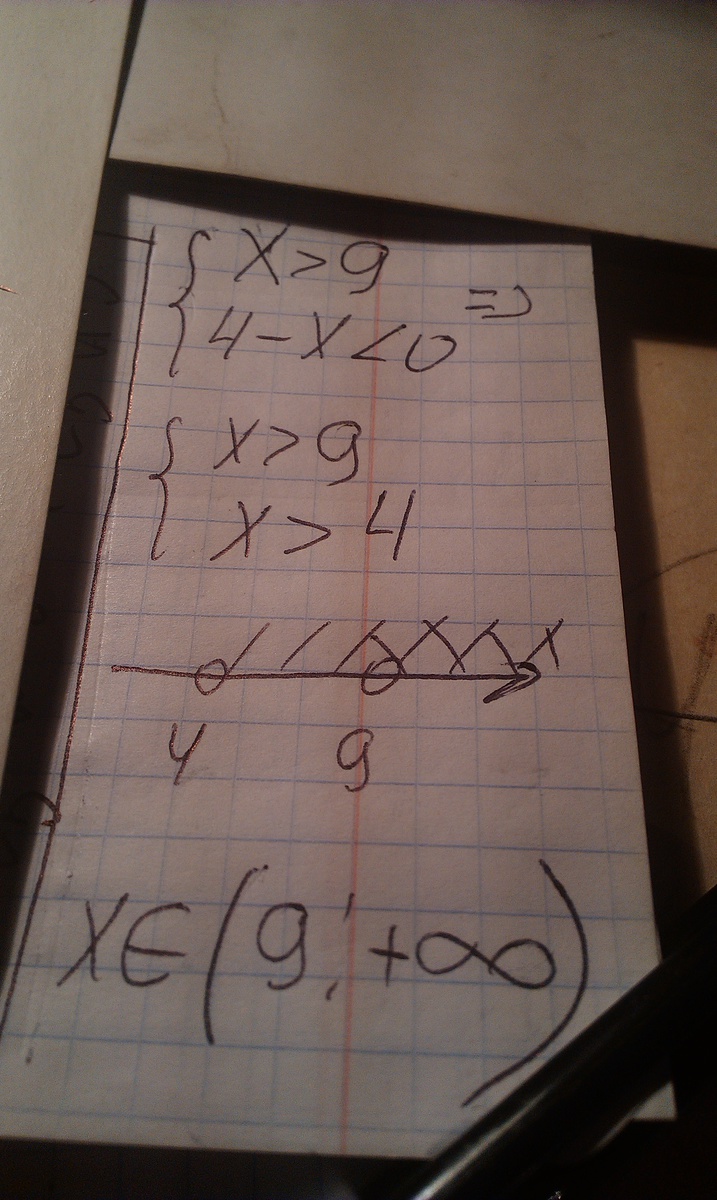 { x > 9
4 - x < 0 =>
{ x > 9
x > 4
4 9
x ∈ (9; +∞)